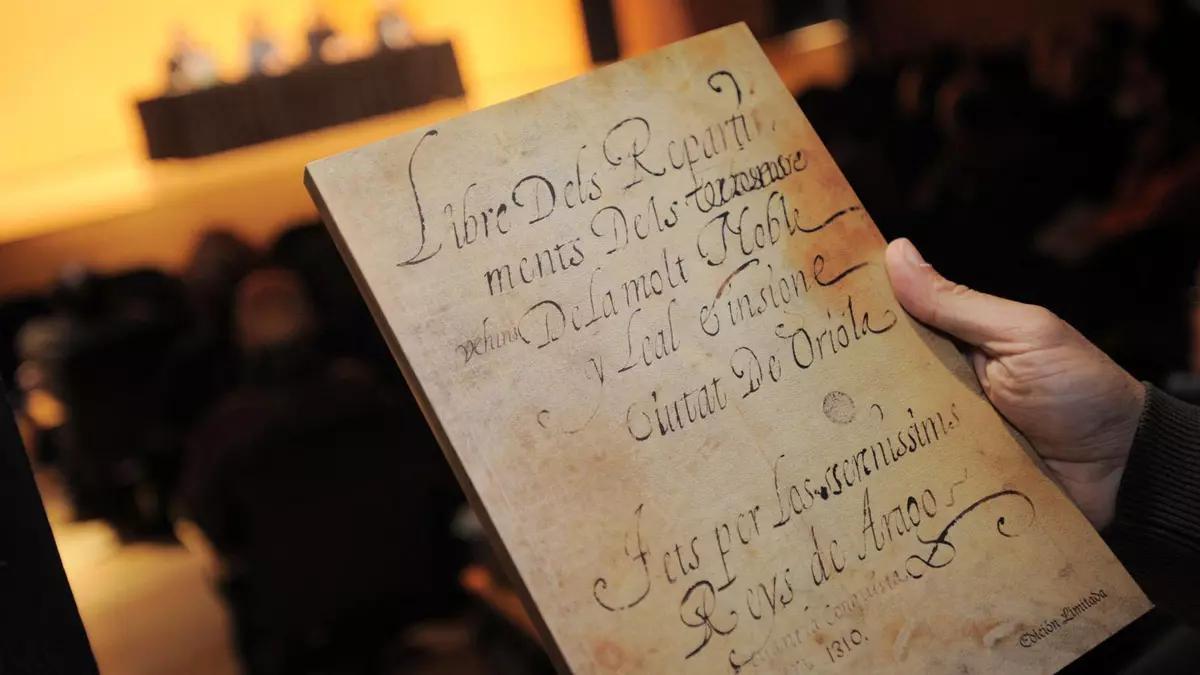 Libre Dels Reparti
ments Dels terros entre
vehins De la molt Noble
y Leal e insigne
Ciutat De Oriola
Fets per Los sserenissims
Reys de Arago
conquista
1310.
Edición Limitada